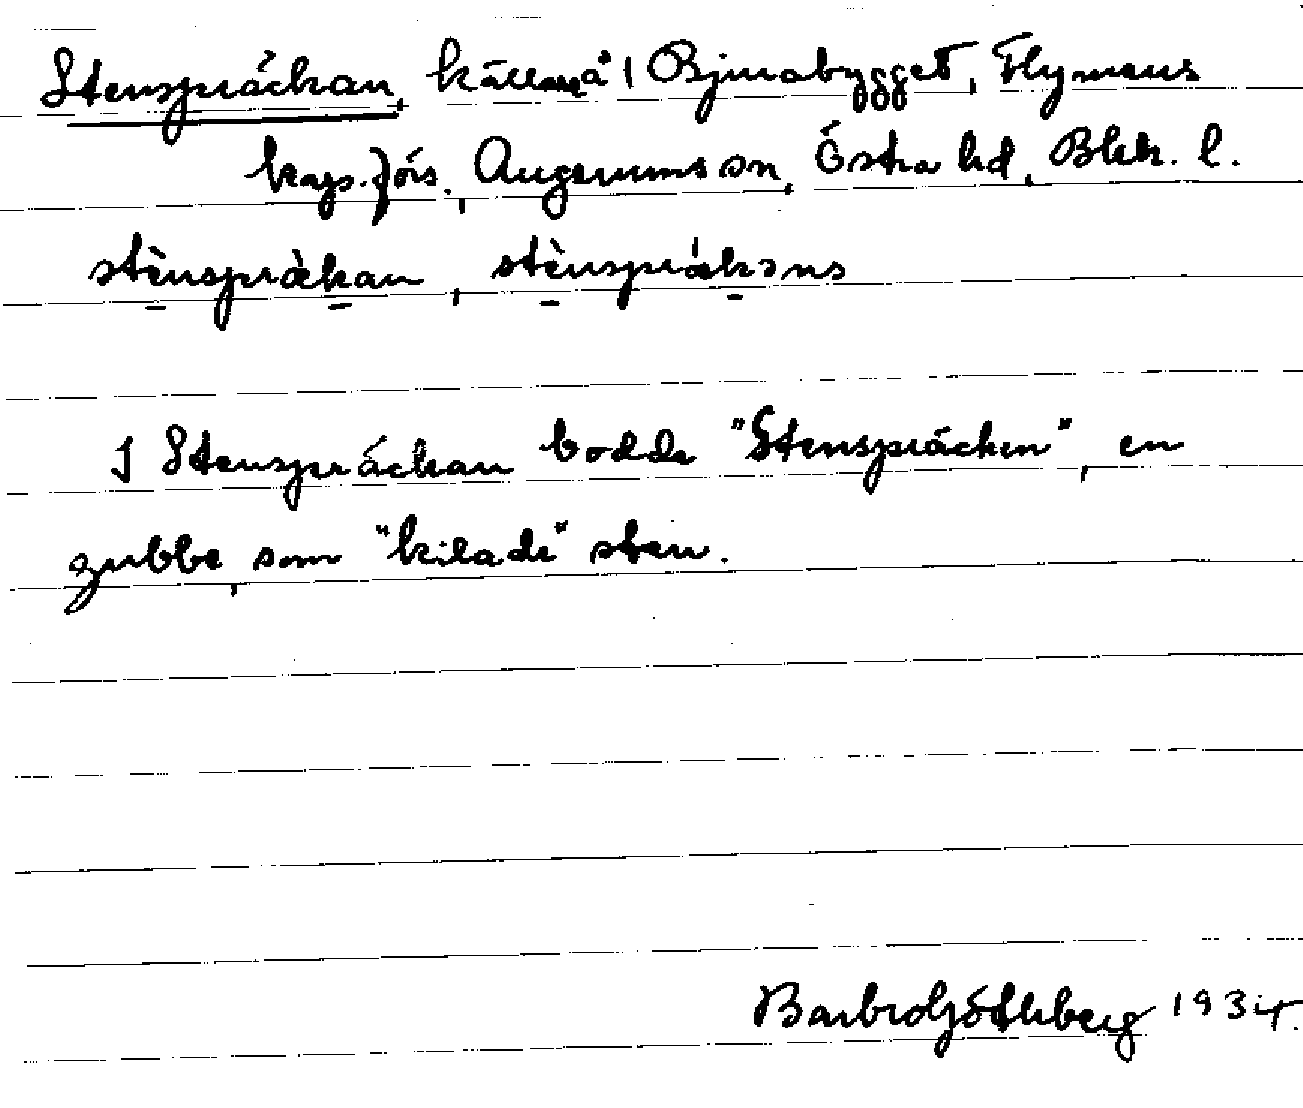 Stenspräckan, källa på Bjurabygget, Flymens
kaps.förs., Augerums sn, Östra hd, Blek. l.
stènspràkan, stènspràkəns
I Stenspräckan bodde "Stenspräcken", en
gubbe, som "kilade" sten.
Barbro Göthberg 1934.